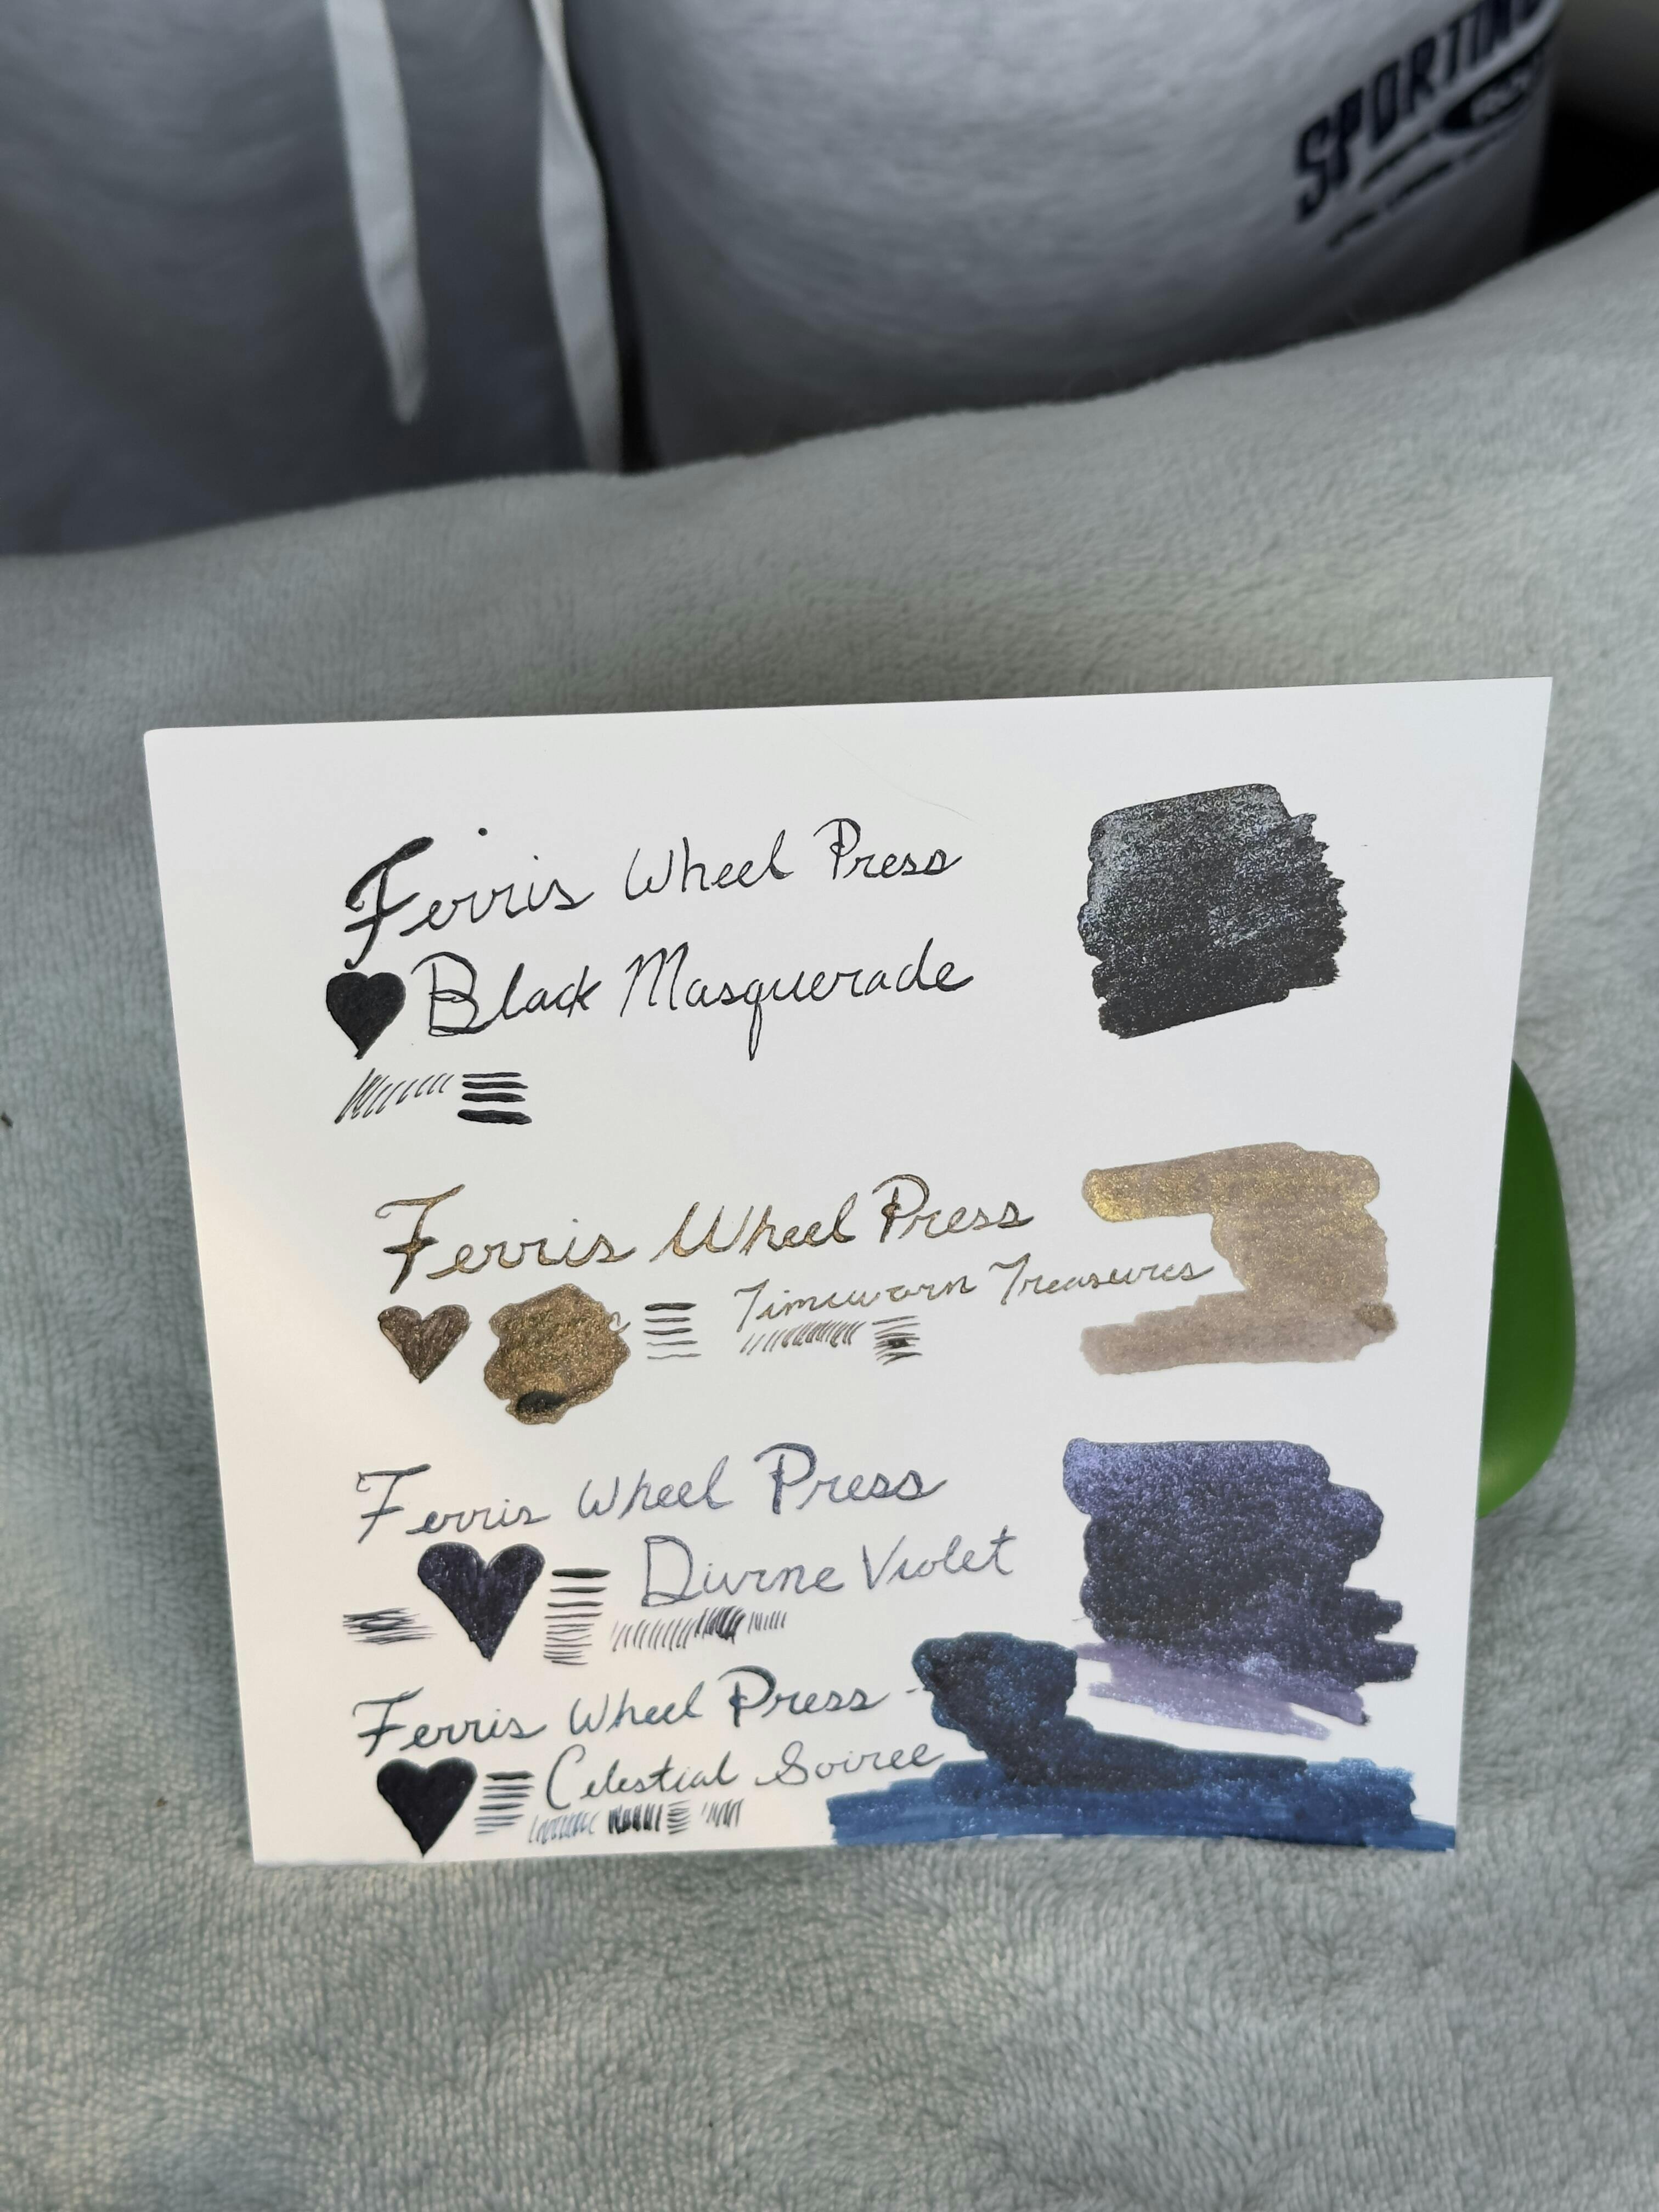 SPORTING
Ferris Wheel Press
Black Masquerade
Ferris Wheel Press
Timeworn Treasures
Ferris Wheel Press
Divine Violet
Ferris Wheel Press -
Celestial Soiree